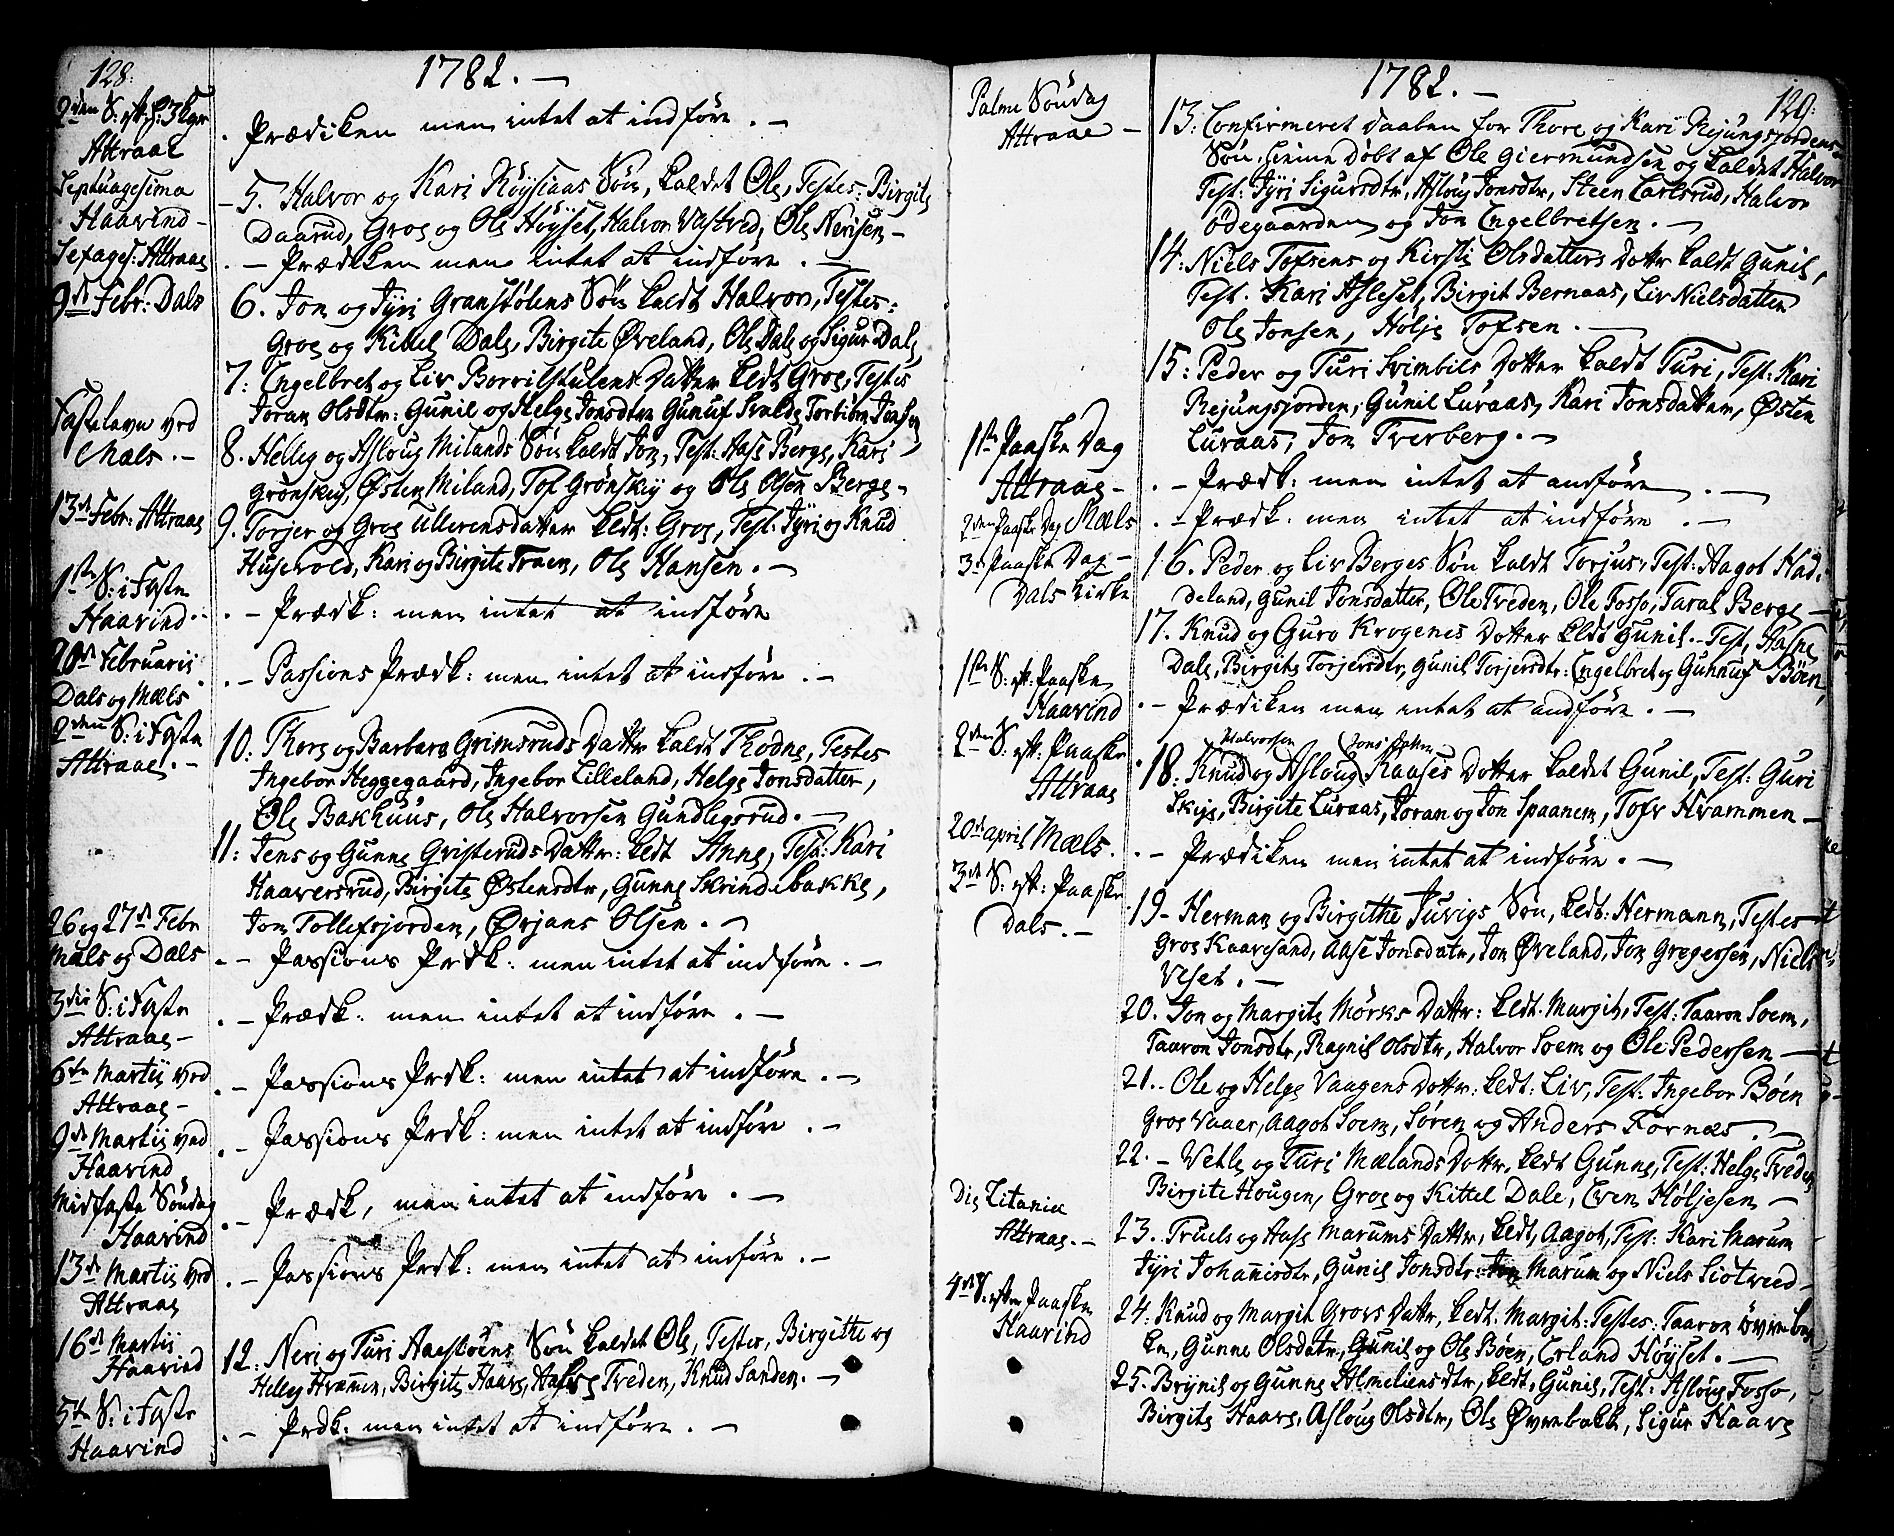 128.
1782. —
2den S: eft: H: 3 Kgr
Attraae
. Prædiken men intet at indføre . —
Septuagesima
Haavind —
5. Halvor og Kari Røysløas Søn, kaldet Ole, Testes: Birgite
Daarud, Groe og Ole Høyset, Halvor Vastved, Ole Nerisen —
Sexages: Attraae
. — Prædiken men intet at indføre . —
9de Febr: Dals
6. Jon og Jyri Granstølens Søn kaldt Halvor, Testes:
Groe og Kittel Dale, Birgite Øveland, Ole Dale og Sigur Dale,
7: Engelbret og Liv Borrilstulens Datter kldt Groe, Testes
Joran Olsdtr: Gunil og Helge Jonsdtr Gunuf Svalde, Torbiørn Jonsen
Fastelavn ved
Mæls. —
8. Hellig og Asloug Milands Søn kaldt Jon, Test: Aase Berge, Kari
Grønskey, Østen Miland, Tof Grønskiy og Ole Olsen Berge —
13de Febr: Attraae
9. Torjer og Groe Ullerens datter kldt: Groe, Test: Jyri og Knud
Husevold, Kari og Birgite Traen, Ole Hansen. —
1ste S: i Faste
Haavind.
. — Prædk: men intet at indføre
20de Februarii
Dals og Mæls
. — Passions Prædk: men intet at indføre . —
2den S: i Faste
Attraae. —
10. Thore og Barbara Grimsruds Datter kaldt Thodne, Testes
Ingebor Heggegaard, Ingebor Lilleland, Helge Jonsdatter,
Ole Bakhuus, Ole Halvorsen Gundlegsrud. —
11: Jens og Gunne Gvisteruds Dattr: kldt Anne, Test: Kari
Haaversrud, Birgite Østensdtr, Gunne Skrindebakke,
Jon Tollefsjorden, Ørjans Olsen. —
26 og 27de Febr
Mæls og Dals
. — Passions Prdk: men intet at indføre . —
3die S: i Faste
Attraae —
. — Prædk: men intet at indføre . —
6te Martii ved
Attraae —
. — Passions Prdk: men intet at indføre . —
9de Martii ved
Haavind
. — Passions Prdk: men intet at indføre . —
Midfaste Søndag
Haavind
. — Prædk, men intet at indføre . —
13de Martii ved
Attraae
. — Passions Prdk: men intet at indføre . —
16de Martii
Haavind
12. Neri og Turi Aaestøens Søn kaldet Ole, Testes, Birgithe og
Helleg Hvamen, Birgite Haave, Aase Treden, Knud Sanden. —
5te S: i Faste
Haavind
. — Prdk: men intet at indføre . —
1782. —
129.
Palme Søndag
Attraae —
13: Confirmeret daaben for Thore og Kari Rejungsjordens
Søn, hiemme døbt af Ole Giermundsen og kaldet Halvor
Test: Jyri Sigursdtr, Asloug Jonsdtr, Steen Carlsrud, Halvor
Ødegaarden og Jon Engelbretsen. —
14. Niels Tofsens og Kirsti Olsdatters Dottr kaldt Gunil,
Test. Kari Asleset, Birgit Bernaas, Liv Nielsdatter
Ole Jonsen, Hølje Tofsen. —
15: Peder og Turi Svimbils Dotter kaldt Turi, Test: Kari
Rejungsjorden, Gunil Luraas, Kari Jonsdatter, Østen
Luraas, Jon Tverberg. —
1ste Paaske Dag
Attraae —
. — Prædk: men intet at andføre . —
2den Paaske Dag Mæls
. — Prædk: men intet at indføre . —
3de Paaske Dag —
Dals Kirke
16. Peder og Liv Berges Søn kaldt Torjus, Test: Aagot Had-
deland, Gunil Jonsdatter, Ole Treden, Ole Fosso, Taral Berge —
17. Knud og Guro Krogenes Dotter kldt Gunil — Test, Aasne
Dale, Birgite Torjersdtr, Gunil Torjersdtr: Engelbret og Gunnuf Bøen,
1ste S: eft: Paaske
Haavind
. — Prædiken men intet at andføre . —
2den S: eft: Paaske
Attraae
Halvorsen Jonsdatter
18. Knud og Asloug Raases Dotter kaldet Gunil, Test: Guri
Skeje, Birgite Luraas, Joran og Jon Spaanem, Tofr Hvammen —
20de april Mæls.
. — Prædiken men intet at indføre . —
3de S: eft: Paaske
Dals. —
19 — Herman og Birgithe Juvigs Søn, kldt: Hermann, Testes
Groe Kaavesand, Aase Jonsdatr, Jon Øveland, Jon Gregersen, Niels
Veset. —
20. Jon og Margite Mørks Dattr: kldt: Margit, Test: Taaron Soem,
Taaron Jonsdtr, Ragnil Olsdtr, Halvor Soem og Ole Pedersen —
21. Ole og Helge Vaagens Dottr: kldt: Liv, Test: Ingebor Bøen
Groe Vaaer, Aagot Soem, Søren og Anders Fornæs. —
22. — Vetle og Turi Mælands Dottr, kldt Gunne, Test: Helge Treden
Birgite Hougen, Groe og Kittel Dale, Even Høljesen —
Die Litaniæ
Attraae. —
23. Truels og Aase Marums Dattr, kldt, Aagot, Test: Kari Marum
Jyri Johanisdtr, Gunil Jonsdtr: Jon Marum og Niels Siotveed —
4de S: eften Paaske
Haavind
24: Knud og Margit Grovs Dattr, kldt: Margit: Testes: Taaron Øvrebøe
Gunne Olsdatr, Gunil og Ole Bøen, Erland Høyset. —
25. Brynil og Gunne Almeliensdtr, kldt, Gunil, Test: Asloug Fosso,
Birgite Haave, Asloug Olsdtr, Ole Øvrebakk, Sigur Haave